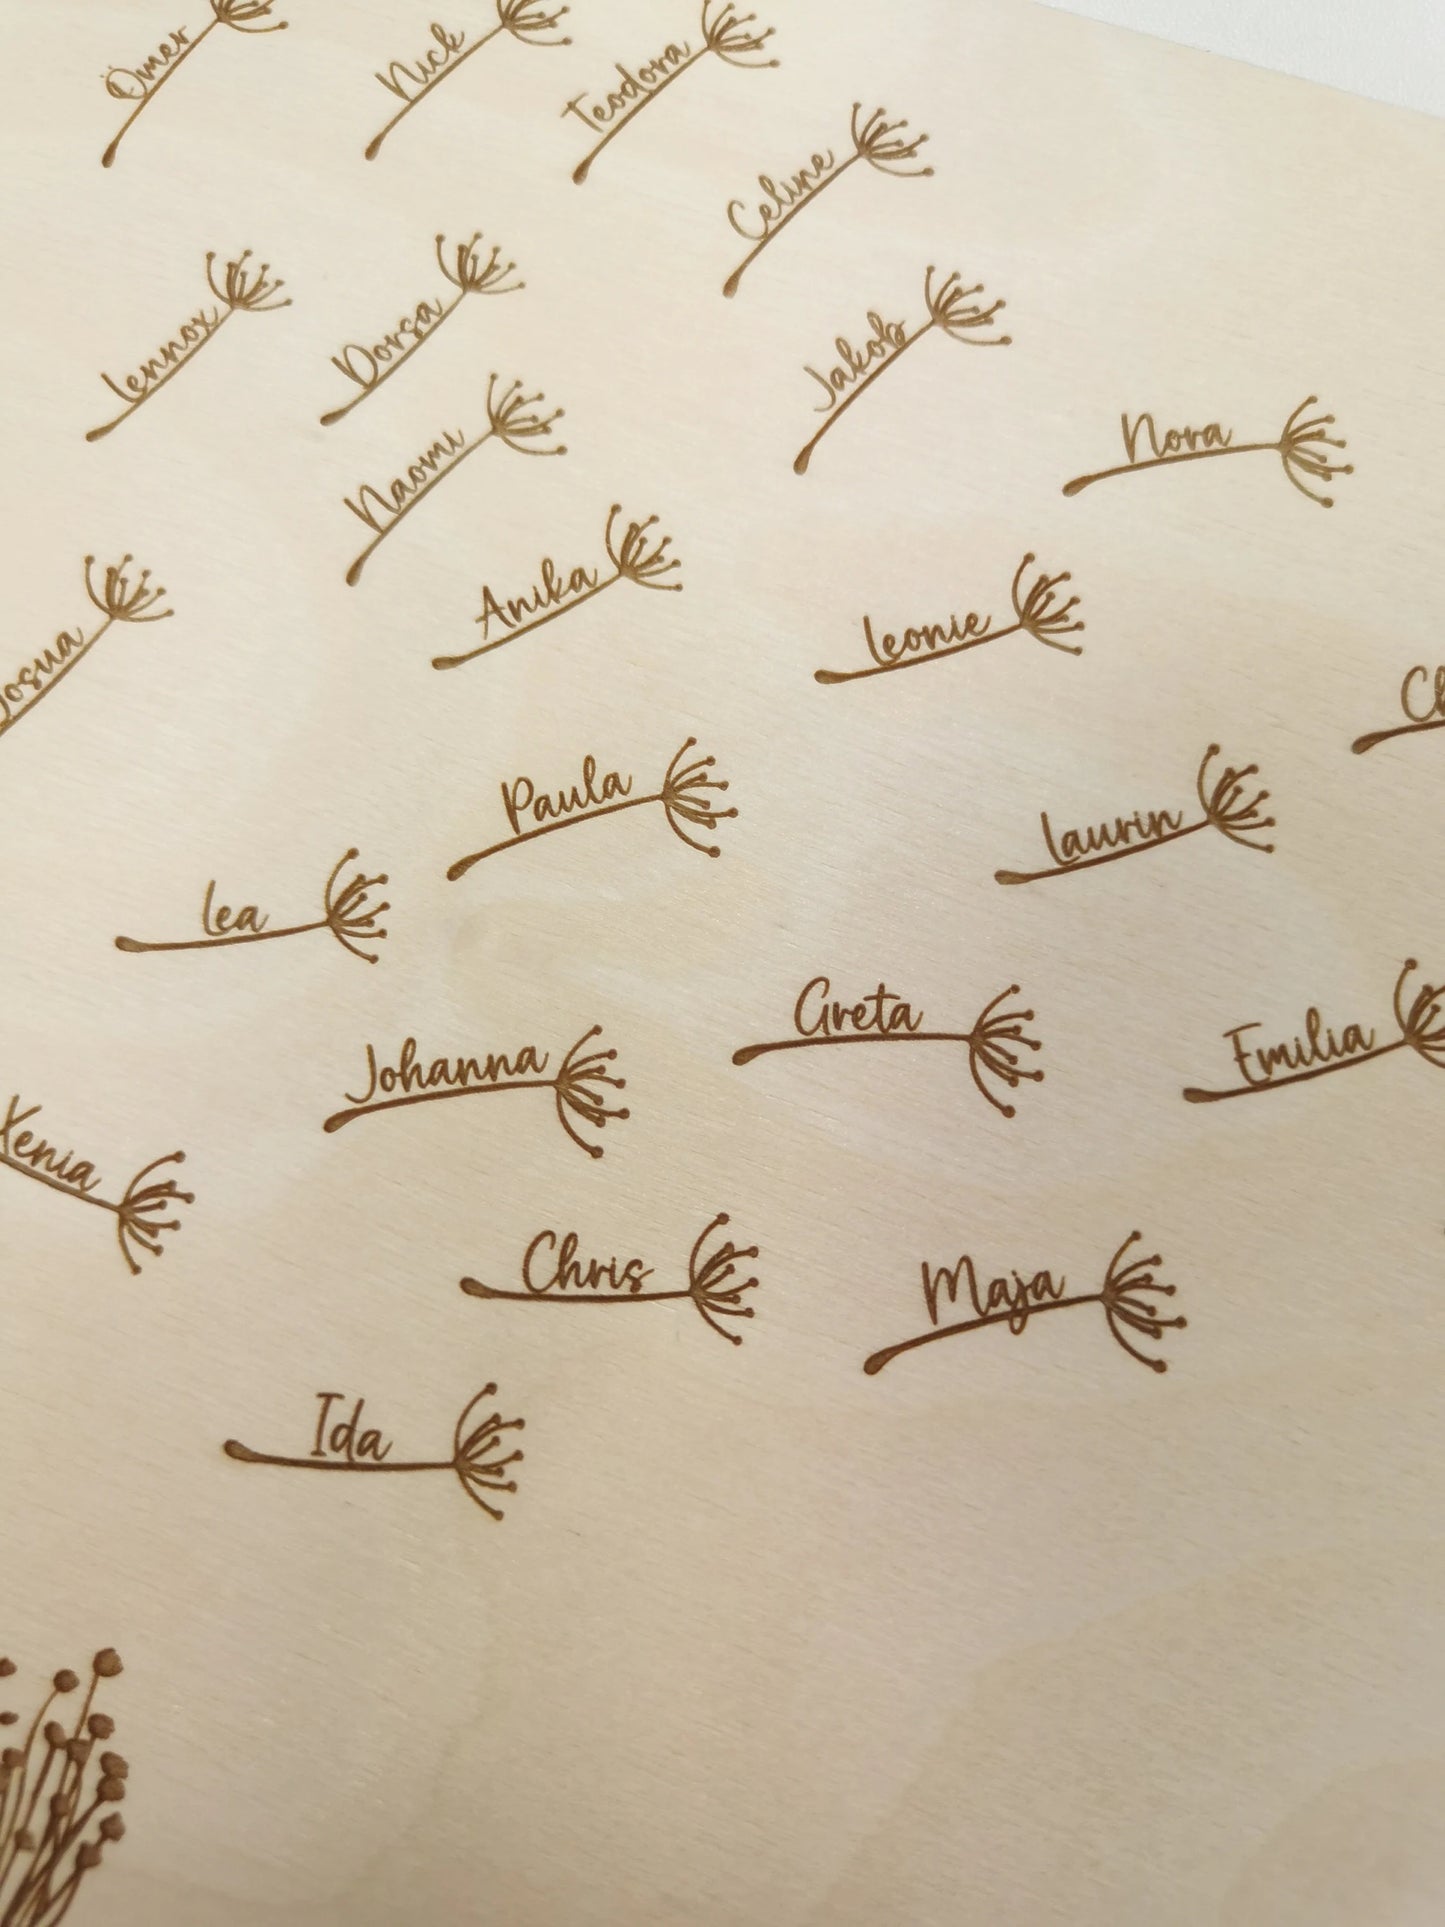 Ömer
Nick
Teodora
Celine
Lennox
Dorsa
Jakob
Naomi
Nora
Anika
Leonie
Josua
Paula
Laurin
Lea
Greta
Emilia
Johanna
Xenia
Chris
Maja
Ida